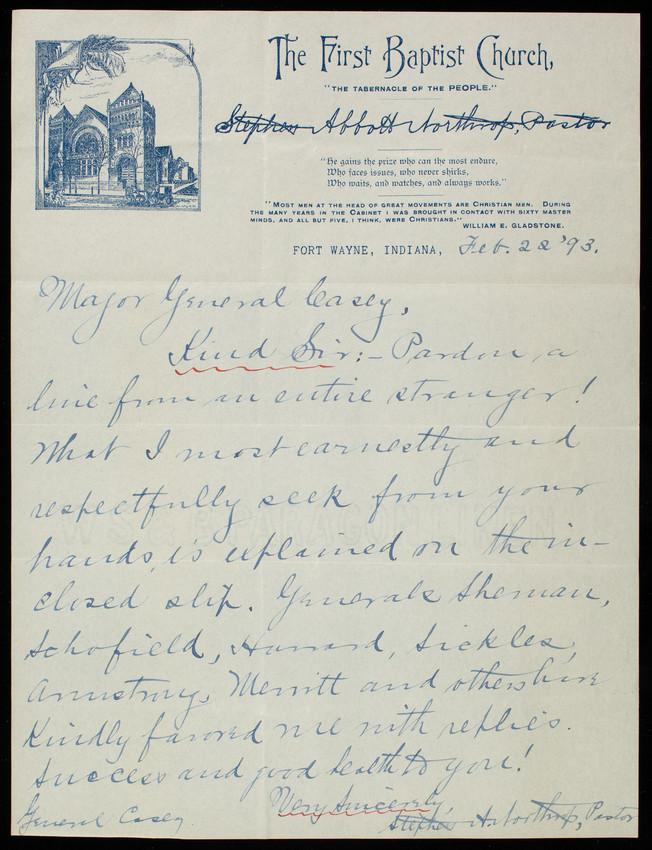 The First Baptist Church,
"THE TABERNACLE OF THE PEOPLE."
Stephen Abbott Northrop, Pastor
"He gains the prize who can the most endure,
Who faces issues, who never shirks,
Who waits, and watches, and always works."
"MOST MEN AT THE HEAD OF GREAT MOVEMENTS ARE CHRISTIAN MEN. DURING
THE MANY YEARS IN THE CABINET I WAS BROUGHT IN CONTACT WITH SIXTY MASTER
MINDS, AND ALL BUT FIVE, I THINK, WERE CHRISTIANS."
WILLIAM E. GLADSTONE.
FORT WAYNE, INDIANA, Feb. 22 '93.
Major General Casey,
Kind Sir:- Pardon a
line from an entire stranger!
What I most earnestly and
respectfully seek from your
hands, is explained on the in-
closed slip. Generals Sherman,
Schofield, Howard, Sickles,
Armstrong, Merritt and others have
Kindly favored me with replies.
Success and good health to you!
Very Sincerely,
General Casey. Stephen A. Northrop, Pastor